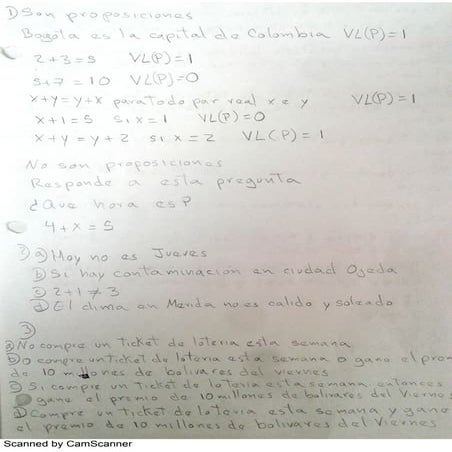 1) Son proposiciones
Bogóta es la capital de Colombia VL(P)=1
2+3=5 VL(P)=1
5+7=10 VL(P)=0
x+y=y+x para todo par real x e y VL(P)=1
x+1=5 si x=1 VL(P)=0
x+y=y+z si x=z VL(P)=1
No son proposiciones
Responde a esta pregunta
¿Que hora es?
4+x=5
2) a) Hoy no es Jueves
b) Si hay contaminacion en ciudad Ojeda
c) 2+1≠3
d) El clima en Merida no es calido y soleado
3)
a) No compre un Ticket de loteria esta semana
b) O compre un ticket de loteria esta semana o gane el prem
de 10 millones de bolivares del viernes
c) Si compre un Ticket de loteria esta semana entonces
gane el premio de 10 millones de bolivares del Viernes
d) Compre un Ticket de loteria esta semana y gane
el premio de 10 millones de bolivares del Viernes
Scanned by CamScanner